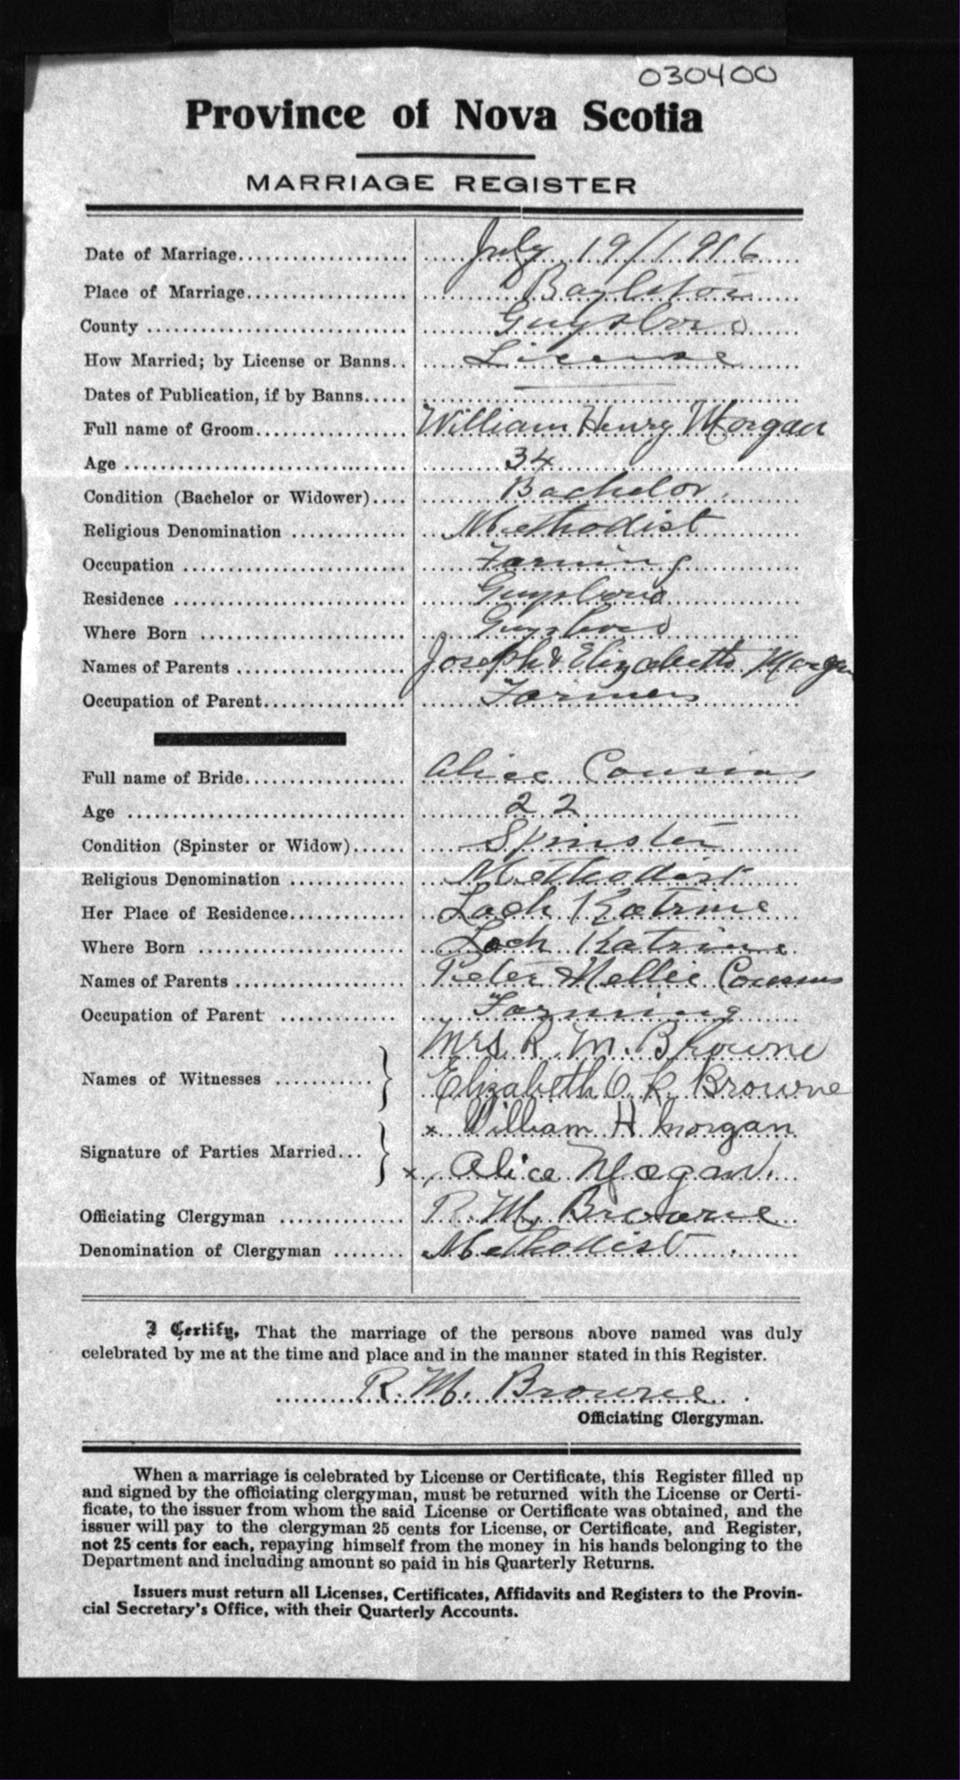 030400
Province of Nova Scotia
MARRIAGE REGISTER
Date of Marriage................... July 19/1916
Place of Marriage.................. Baylston
County ............................. Guysboro
How Married; by License or Banns.. License
Dates of Publication, if by Banns.....
Full name of Groom................. William Henry Morgan
Age ............................... 34
Condition (Bachelor or Widower).... Bachelor
Religious Denomination ............. Methodist
Occupation ......................... Farming
Residence .......................... Guysboro
Where Born ......................... Guysboro
Names of Parents ................... Joseph & Elizabeth Morgan
Occupation of Parent................ Farmers
Full name of Bride.................. Alice Cousins
Age ................................ 22
Condition (Spinster or Widow)...... Spinster
Religious Denomination ............. Methodist
Her Place of Residence.............. Loch Katrine
Where Born ......................... Loch Katrine
Names of Parents ................... Peter & Nellie Cousins
Occupation of Parent ............... Farming
Mrs. R. M. Browne
Names of Witnesses ........... } Elizabeth O. R. Browne
x William H Morgan
Signature of Parties Married... } x Alice Mogan.
Officiating Clergyman .............. R. M. Browne
Denomination of Clergyman ........ Methodist
I Certify, That the marriage of the persons above named was duly
celebrated by me at the time and place and in the manner stated in this Register.
R. M. Browne
Officiating Clergyman.
When a marriage is celebrated by License or Certificate, this Register filled up
and signed by the officiating clergyman, must be returned with the License or Certi-
ficate, to the issuer from whom the said License or Certificate was obtained, and the
issuer will pay to the clergyman 25 cents for License, or Certificate, and Register,
not 25 cents for each, repaying himself from the money in his hands belonging to the
Department and including amount so paid in his Quarterly Returns.
Issuers must return all Licenses, Certificates, Affidavits and Registers to the Provin-
cial Secretary's Office, with their Quarterly Accounts.